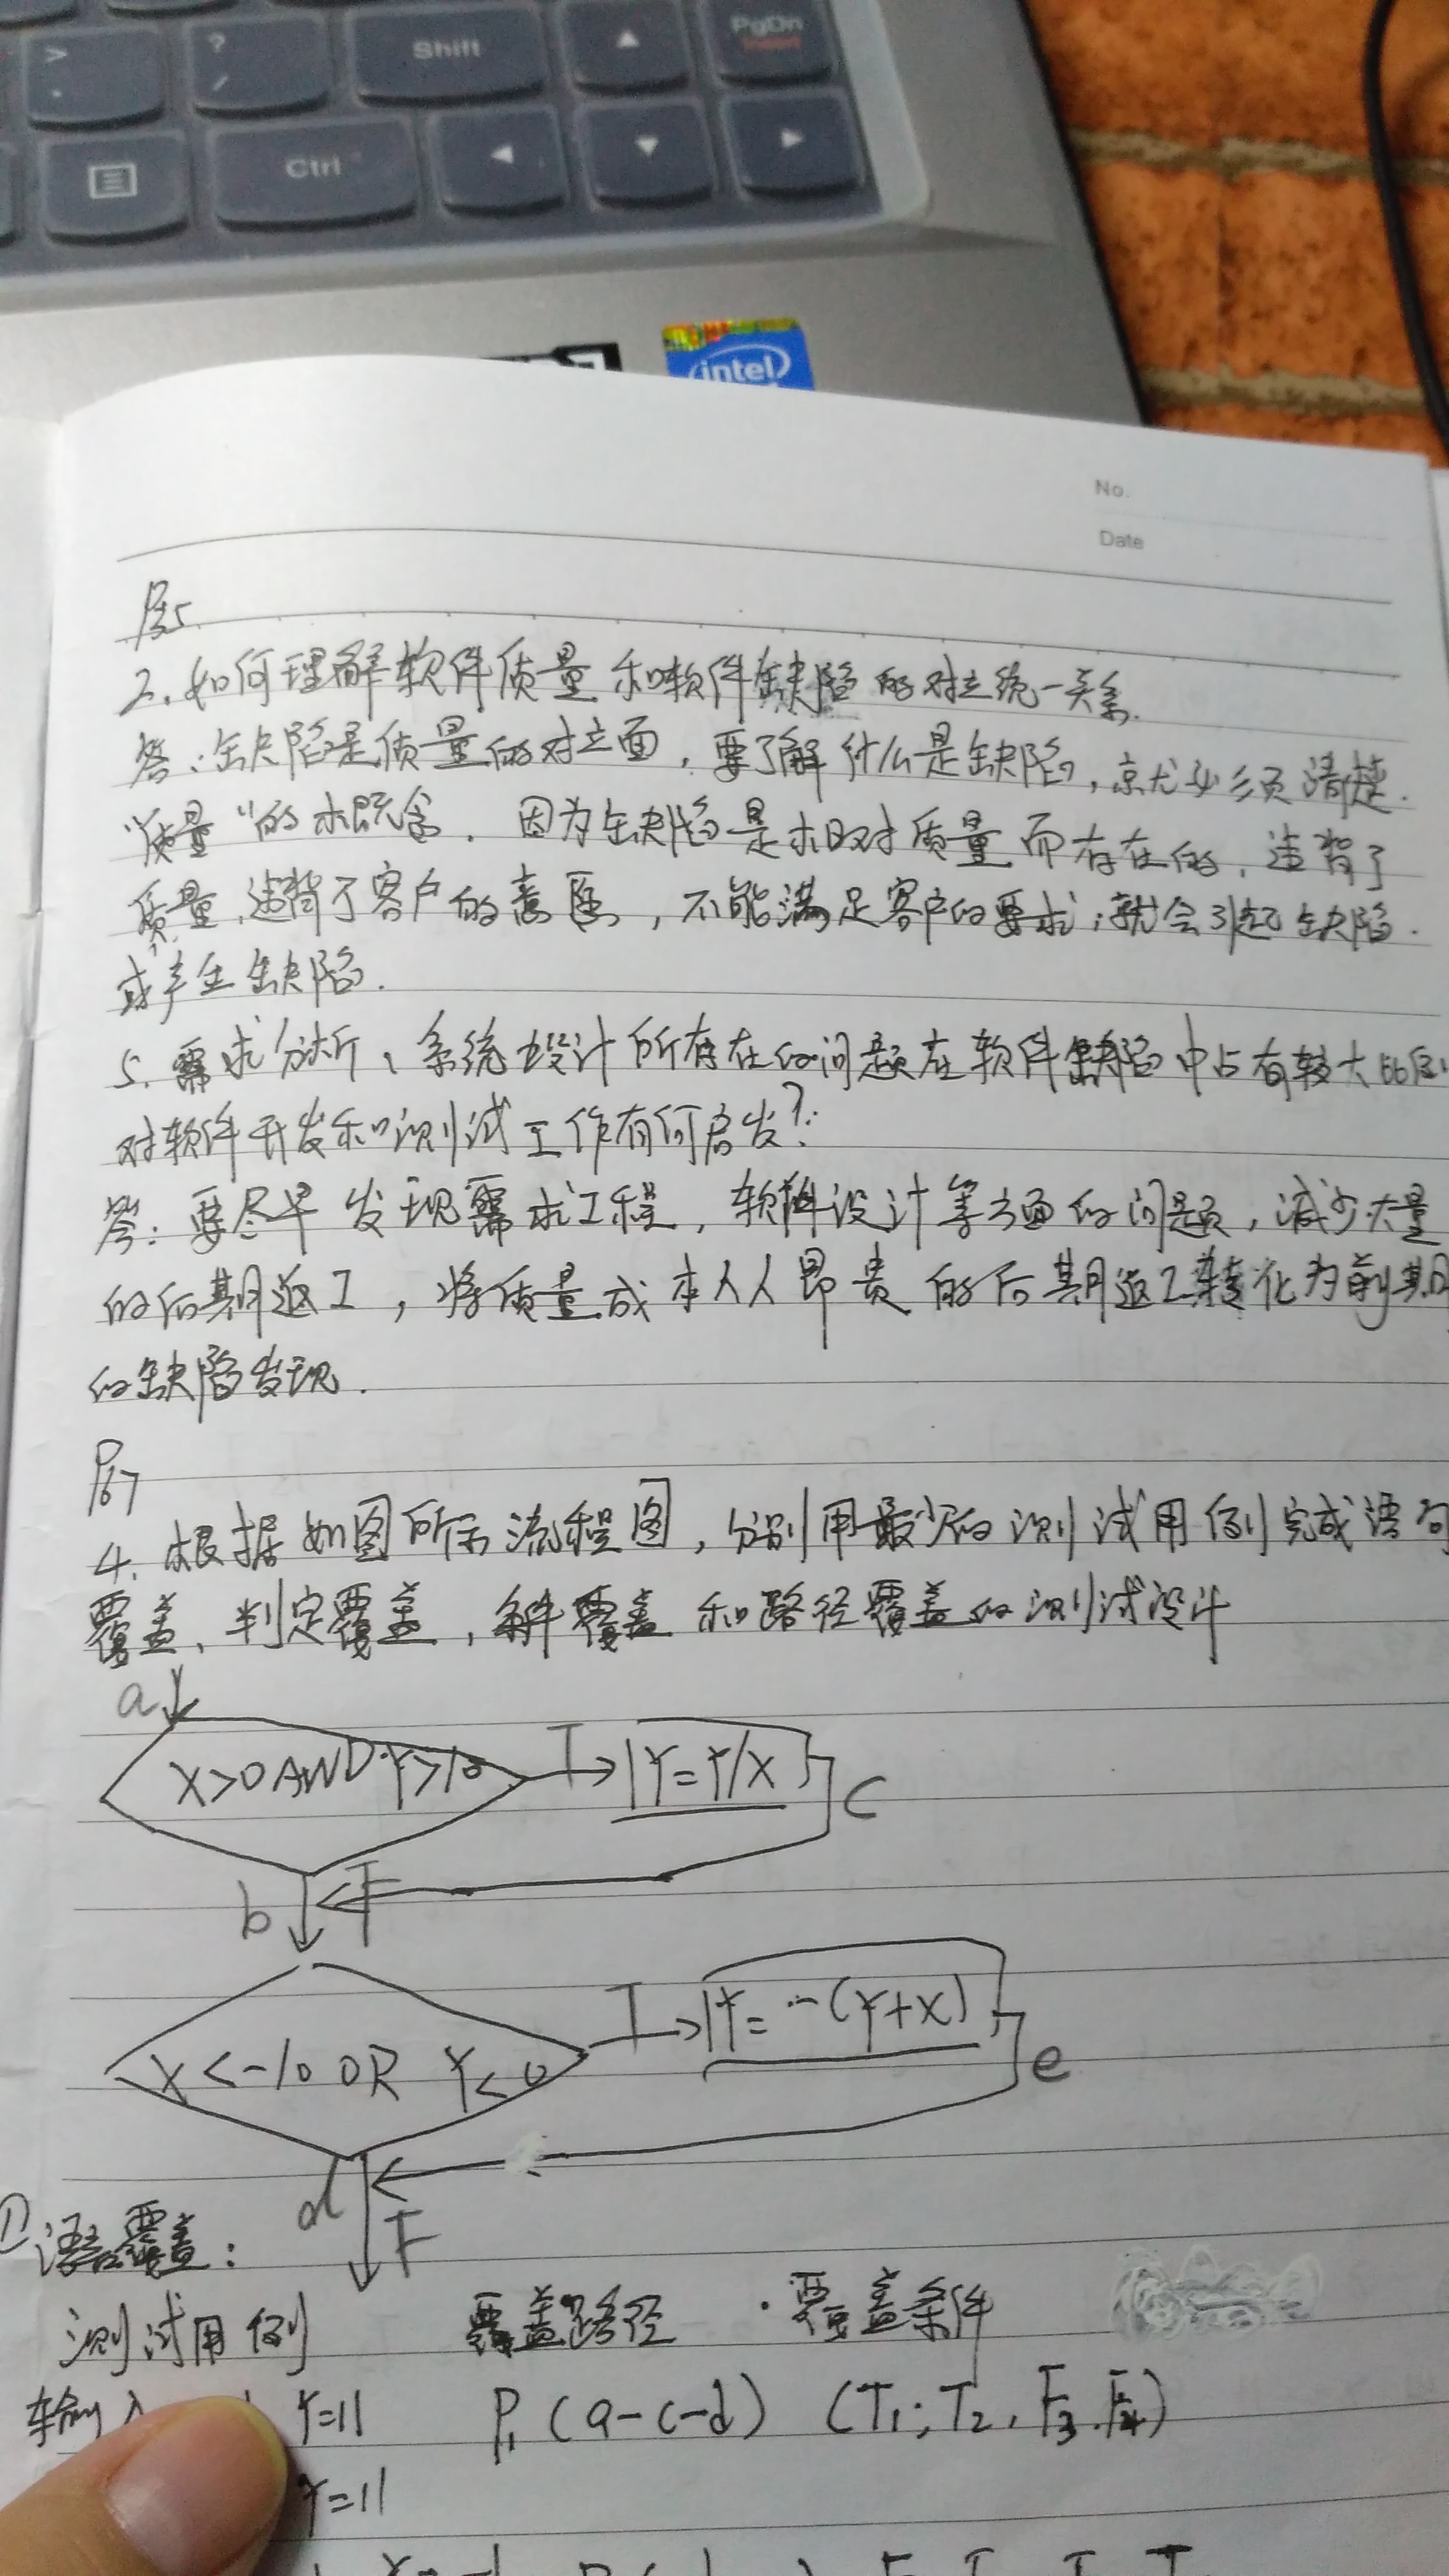 >
.
?
/
Shift
PgDn
Ctrl
intel
No.
Date
2.如何理解软件质量和软件缺陷的对立统一关系.
答:缺陷是质量的对立面,要了解什么是缺陷,就必须清楚.
"质量"的概念.因为缺陷是相对质量而存在的,违背了
质量,违背了客户的意愿,不能满足客户的要求,就会引起缺陷.
或产生缺陷.
5.需求分析、系统设计所存在的问题在软件缺陷中占有较大比例
对软件开发和测试工作有何启发?
答:要尽早发现需求工程,软件设计等方面的问题,减少大量
的后期返工,将质量成本从昂贵的后期返工转化为前期
的缺陷发现.
P67
4.根据如图所示流程图,分别用最少的测试用例完成语句
覆盖、判定覆盖,条件覆盖和路径覆盖的测试设计
a
X>0 AND Y>10 T Y=Y/X
c
b F
X<-10 OR Y<0 T Y=-(Y+X)
e
d F
①语句覆盖:
测试用例 覆盖路径 覆盖条件
输入 Y=11 P1(a-c-d) (T1,T2,F3,F4)
Y=11